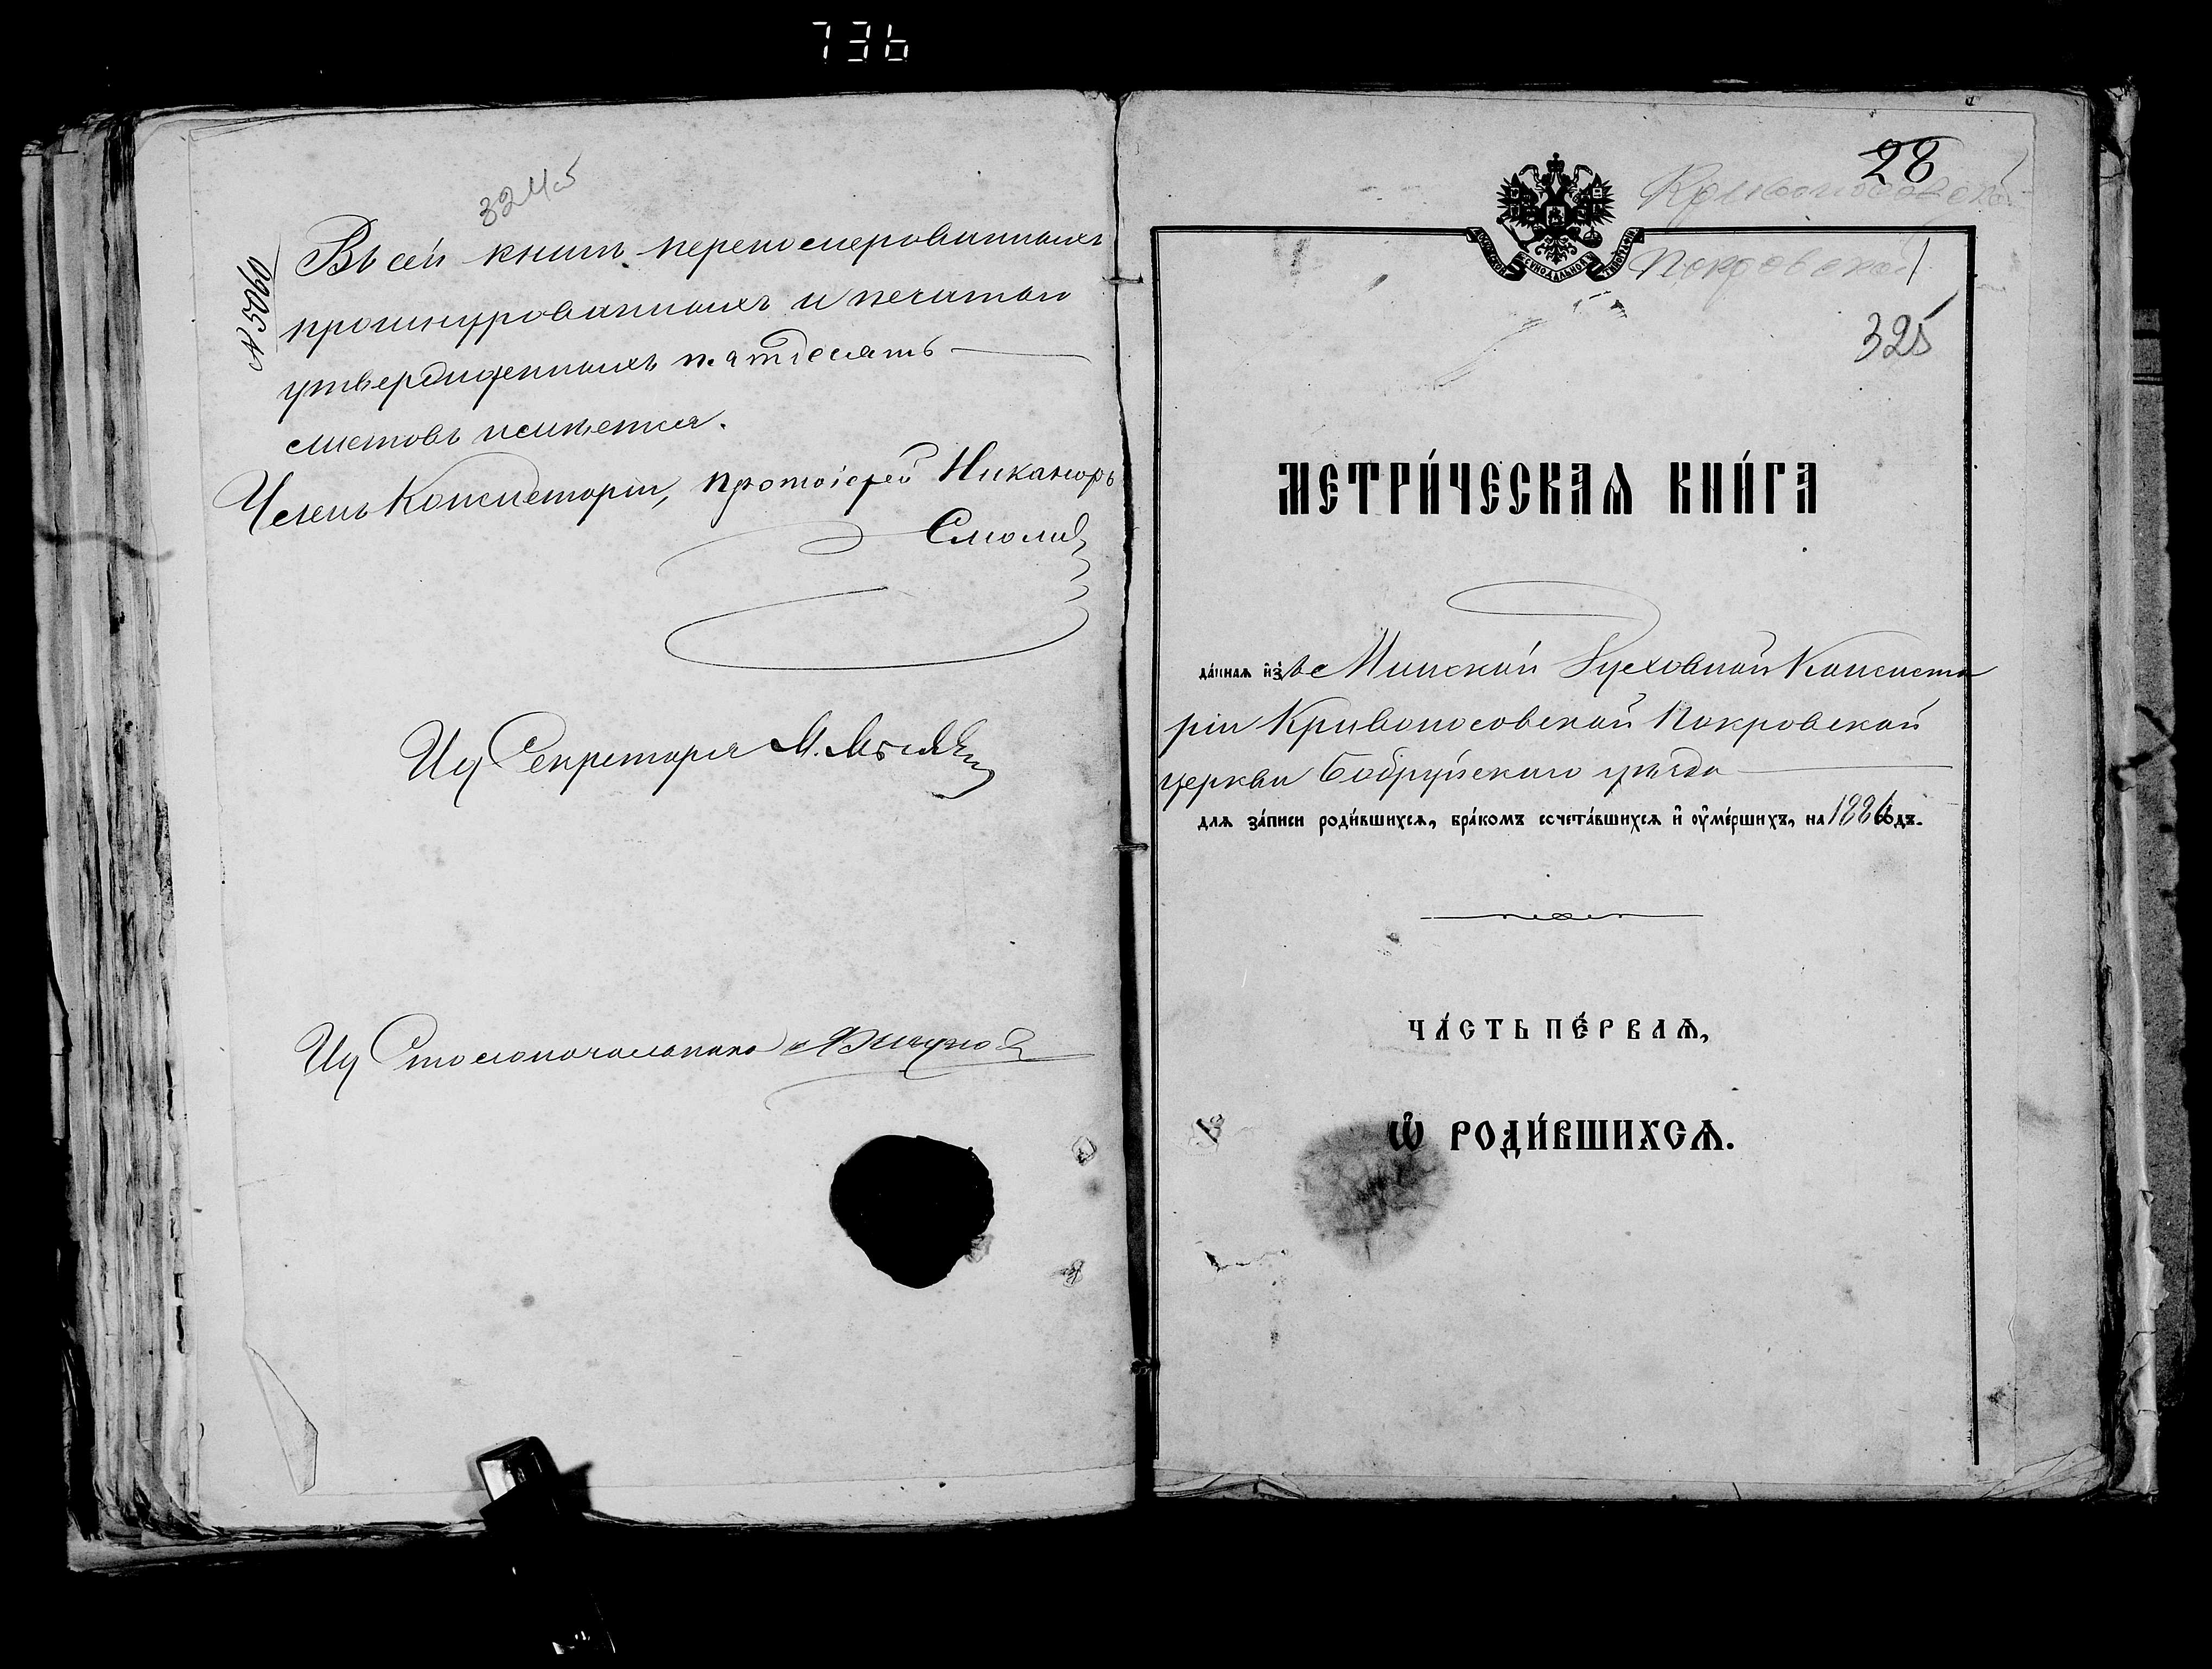 736
324об
№ 5060
Въ сей книгѣ перенумерованныхъ
прошнурованныхъ и печатью
утвержденныхъ пятьдесятъ
листовъ имѣется.
Членъ Консисторіи, Протоіерей Никаноръ
Смолич
Ид Секретаря М.
Ид Столоначальника
28
Кривоносовской
Покровской
325
МОСКОВСКОЙ СѴНОДАЛЬНОЙ ТИПОГРАФІИ
МЕТРИ́ЧЕСКАѦ КНИ́ГА
да́ннаѧ и҆зъ Минской Духовной Консисто
ріи Кривоносовской Покровской
церкви Бобруйскаго уѣзда
для за́писи роди́вшихсѧ, бра́комъ сочета́вшихсѧ и҆ ᲂу҆ме́ршихъ, на 1886 го́дъ.
ЧА́СТЬ ПЕ́РВАѦ,
Ѽ РОДИ́ВШИХСѦ.